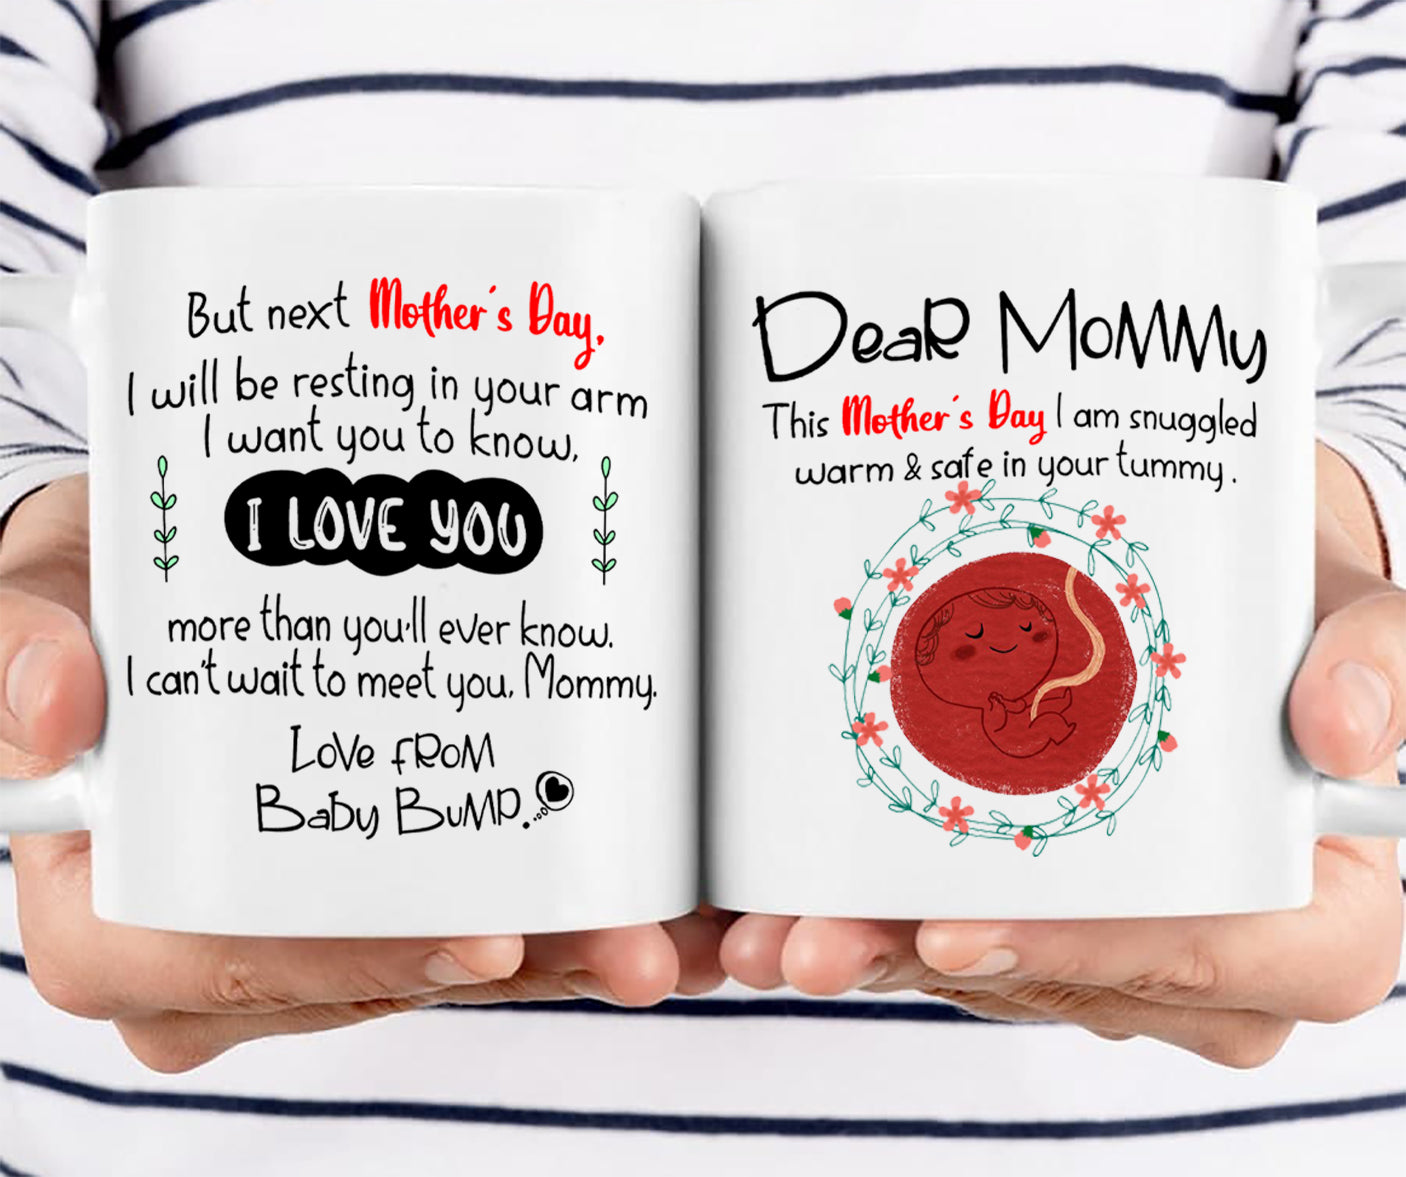 But next Mother's Day,
I will be resting in your arm
I want you to know,
I LOVE YOU
more than you'll ever know.
I can't wait to meet you, Mommy.
Love from
Baby Bump.
Dear Mommy
This Mother's Day I am snuggled
warm & safe in your tummy.